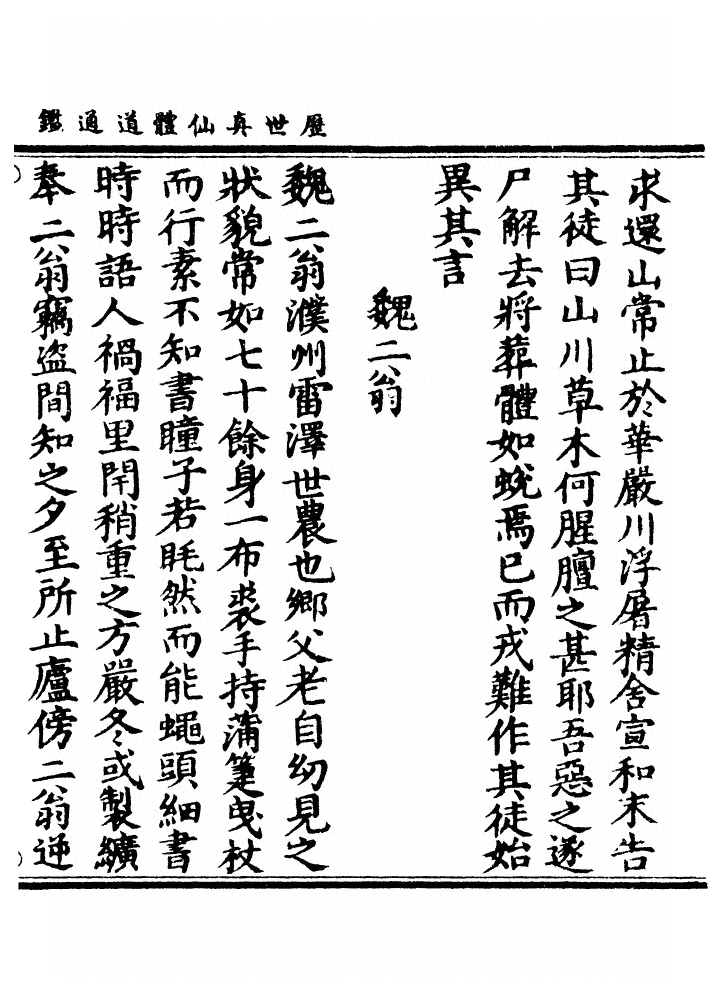 歷世真仙體道通鑑
求還山常止於華嚴川浮屠精舍宣和末告
其徒曰山川草木何腥膻之甚耶吾惡之遂
尸解去將葬體如蛻焉已而戎難作其徒始
異其言
魏二翁
魏二翁濮州雷澤世農也鄉父老自幼見之
狀貌常如七十餘身一布裘手持蒲箑曳杖
而行素不知書瞳子若眊然而能蠅頭細書
時時語人禍福里閈稍重之方嚴冬或製纊
奉二翁竊盜間知之夕至所止廬傍二翁逆